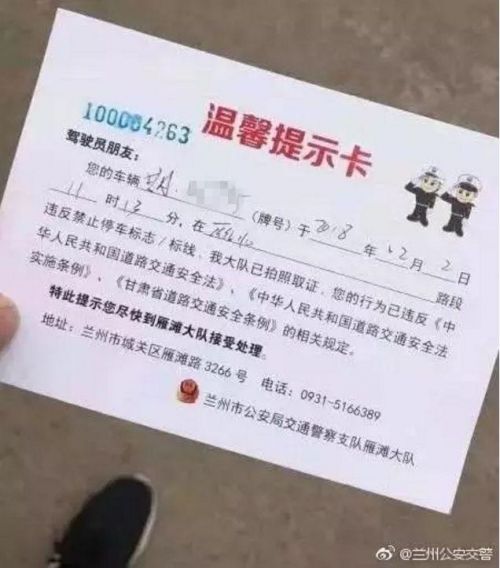 温馨提示卡
100064263
驾驶员朋友：
您的车辆 （牌号）于 2018 年 12 月 2 日
11 时 13 分，在 路段
违反禁止停车标志/标线，我大队已拍照取证，您的行为已违反《中
华人民共和国道路交通安全法》、《中华人民共和国道路交通安全法
实施条例》、《甘肃省道路交通安全条例》的相关规定。
特此提示您尽快到雁滩大队接受处理。
地址：兰州市城关区雁滩路3266号 电话：0931-5166389
兰州市公安局交通警察支队雁滩大队
@兰州公安交警